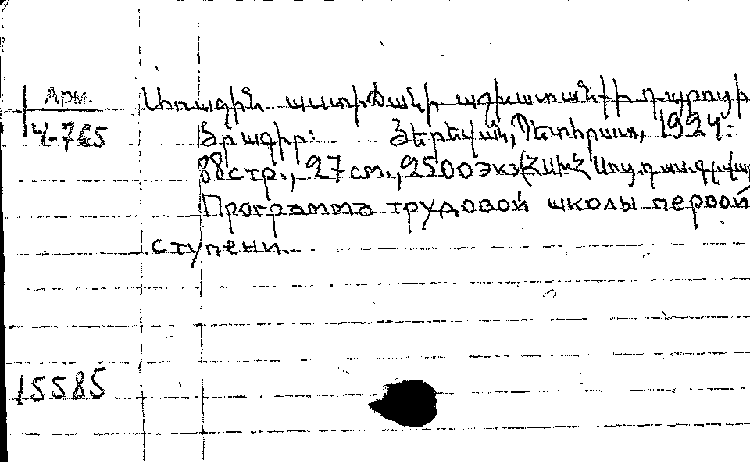 Арм.
4-765
Առաջին աստիճանի աշխատանքի դպրոցի
Ծրագիր: Յերեվան, Պետհրատ, 1924:
38 стр., 27 см., 2500 экз. (ՀՍԽՀ
Программа трудовой школы первой
ступени.
15585